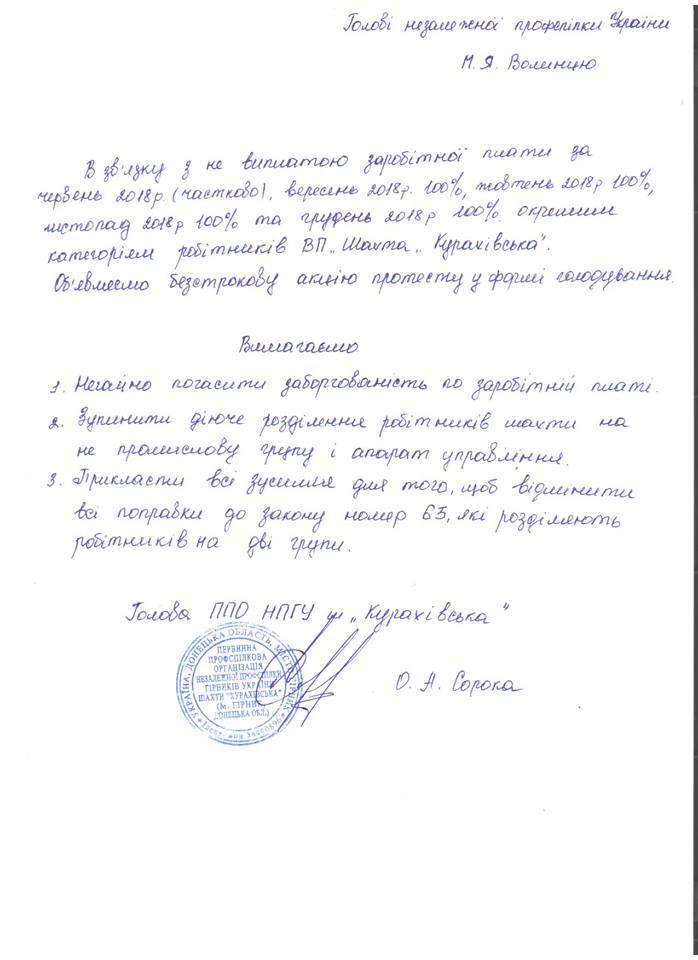 Голові незалежної профспілки України
М. Я. Волинцю
В зв'язку з не виплатою заробітної плати за
червень 2018р. (частково), вересень 2018р. 100%, жовтень 2018р 100%,
листопад 2018р 100% та грудень 2018р 100%. окремим
категоріям робітників ВП „Шахта „Курахівська".
Об'являемо безстрокову акцію протесту у формі голодування.
Вимагаємо
1. Негайно погасити заборгованість по заробітній платі.
2. Зупинити діюче розділення робітників шахти на
не промислову групу і апарат управління.
3. Прикласти всі зусилля для того, щоб відмінити
всі поправки до закону номер 63, які розділяють
робітників на дві групи.
Голова ППО НПГУ ш „Курахівська"
УКРАЇНА, ДОНЕЦЬКА ОБЛАСТЬ, МІСТО
ПЕРВИННА
ПРОФСПІЛКОВА
ОРГАНІЗАЦІЯ
НЕЗАЛЕЖНОЇ ПРОФСПІЛКИ
ГІРНИКІВ УКРАЇНИ
ШАХТИ "КУРАХІВСЬКА"
(М. ГІРНИК
ДОНЕЦЬКА ОБЛ.)
О. А. Сорока